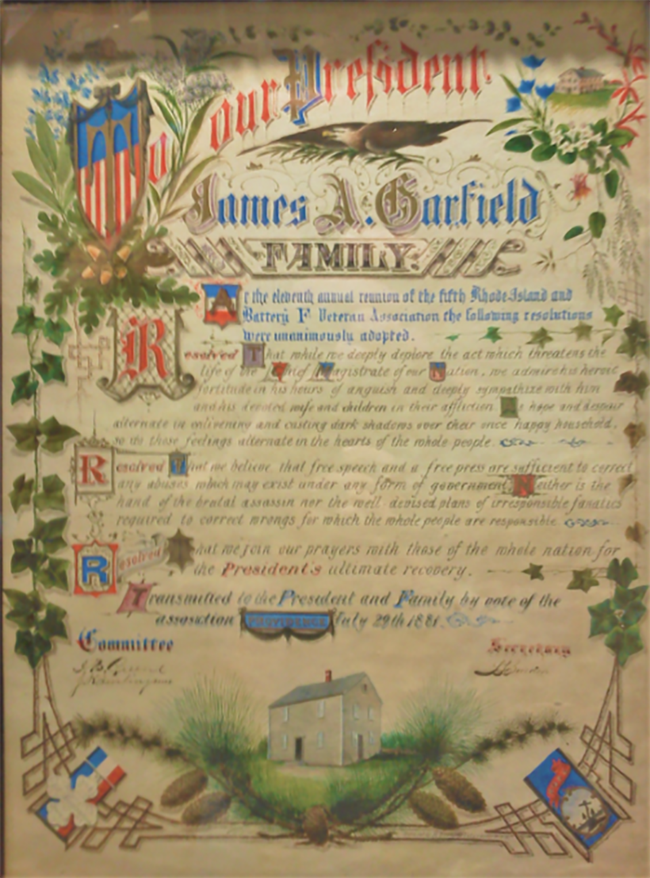 To our President
James A. Garfield
FAMILY.
At the eleventh annual reunion of the fifth Rhode Island and
Battery F Veteran Association the following resolutions
were unanimously adopted.
Resolved That while we deeply deplore the act which threatens the
life of the Chief Magistrate of our Nation, we admire his heroic
fortitude in his hours of anguish and deeply sympathize with him
and his devoted wife and children in their affliction As hope and despair
alternate in enlivening and casting dark shadows over their once happy household,
so do those feelings alternate in the hearts of the whole people.
Resolved That we believe that free speech and a free press are sufficient to correct
any abuses which may exist under any form of government Neither is the
hand of the brutal assassin nor the well devised plans of irresponsible fanatics
required to correct wrongs for which the whole people are responsible
Resolved That we join our prayers with those of the whole nation for
the President's ultimate recovery.
Transmitted to the President and Family by vote of the
association July 29th 1881.
Committee Secretary